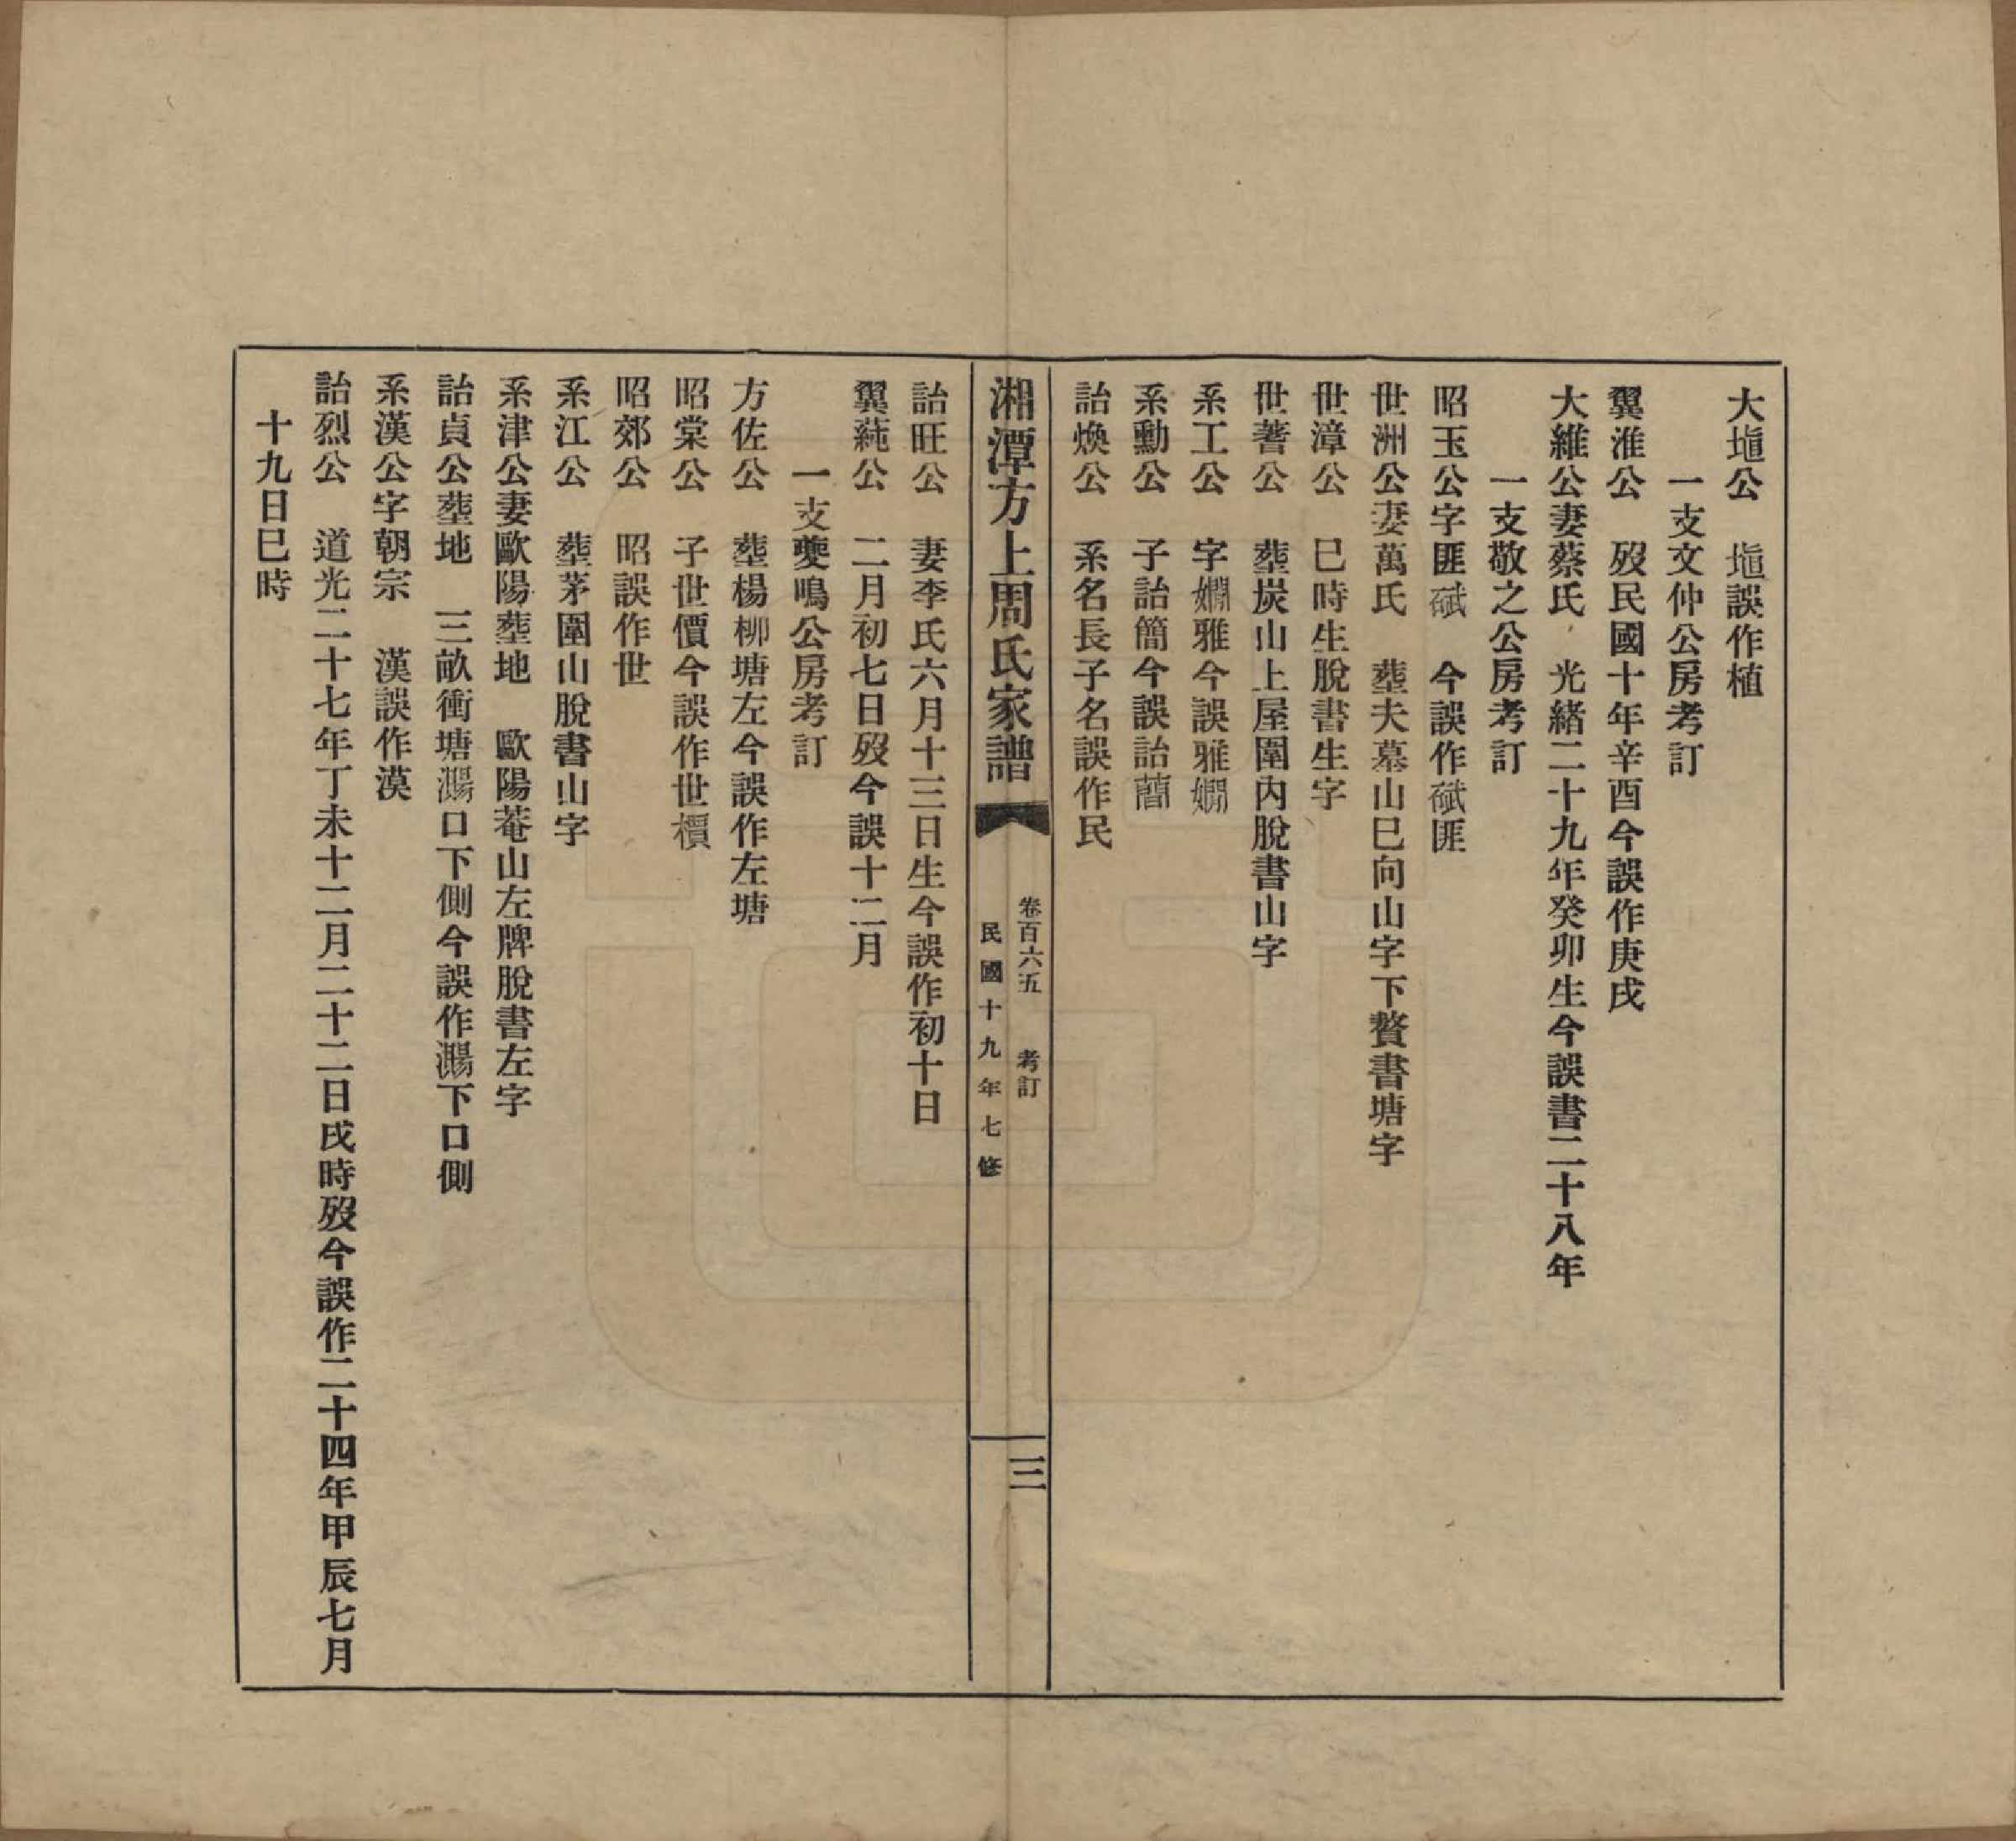 大塇公　塇誤作植
一支文仲公房考訂
翼淮公　歿民國十年辛酉今誤作庚戌
大維公妻蔡氏　光緒二十九年癸卯生今誤書二十八年
一支敬之公房考訂
昭玉公字匪碔　今誤作碔匪
世洲公妻萬氏　塟夫墓山巳向山字下贅書塘字
世漳公　巳時生脫書生字
世蓍公　塟炭山上屋圍內脫書山字
系工公　字嫻雅今誤雅嫻
系勳公　子詒簡今誤詒蕳
詒煥公　系名長子名誤作民
湘潭方上周氏家譜
卷百六五　考訂
民國十九年七修
三
詒旺公　妻李氏六月十三日生今誤作初十日
翼蒓公　二月初七日歿今誤十二月
一支夔鳴公房考訂
方佐公　塟楊柳塘左今誤作左塘
昭棠公　子世價今誤作世櫃
昭郊公　昭誤作世
系江公　塟茅圍山脫書山字
系津公妻歐陽塟地　歐陽菴山左牌脫書左字
詒貞公塟地　三畝衝塘㵝口下側今誤作㵝下口側
系漢公字朝宗　漢誤作漠
詒烈公　道光二十七年丁未十二月二十二日戌時歿今誤作二十四年甲辰七月
十九日巳時